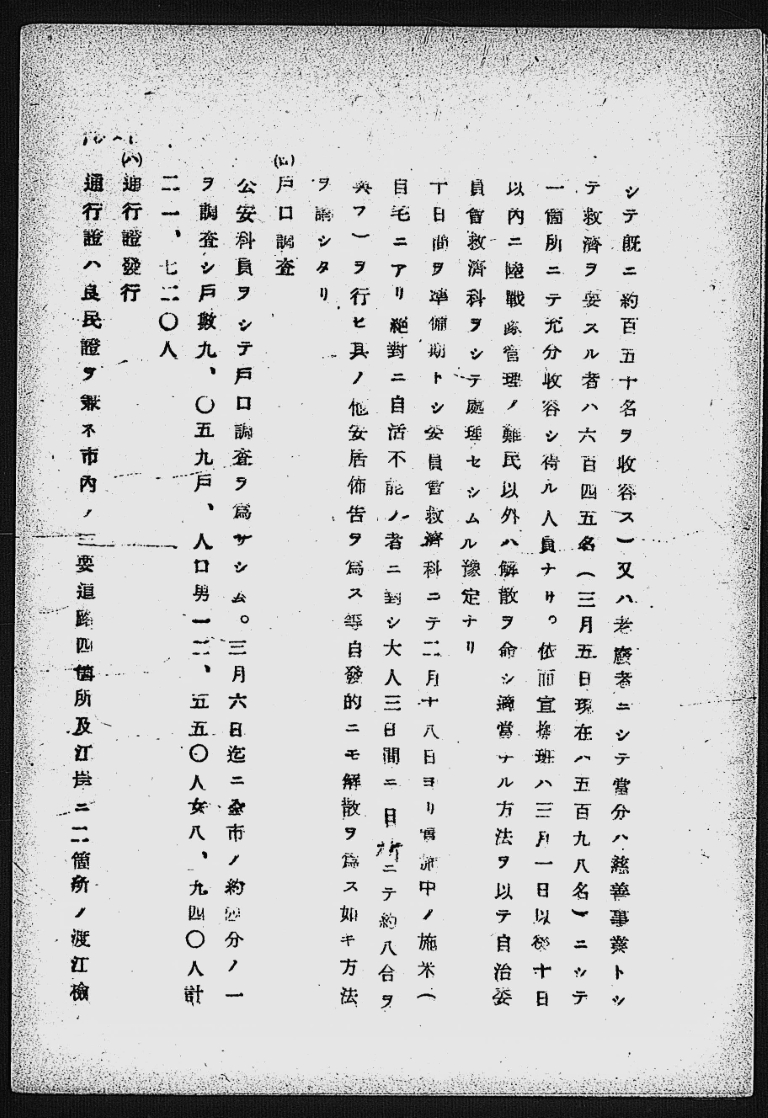 シテ既ニ約百五十名ヲ收容ス)又ハ老廢者ニシテ當分ハ慈善事業トシ
テ救濟ヲ要スル者ハ六百四五名(三月五日現在ハ五百九八名)ニシテ
一箇所ニテ充分收容シ得ル人員ナリ。依而宣撫班ハ三月一日以後十日
以内ニ陸戰隊管理ノ難民以外ハ解散ヲ命シ適當ナル方法ヲ以テ自治委
員會救濟科ヲシテ處理セシムル豫定ナリ
十日間ヲ準備期トシ委員會救濟科ニテ二月十八日ヨリ實施中ノ施米(
自宅ニアリ絕對ニ自活不能ノ者ニ對シ大人三日間ニ日新ニテ約八合ヲ
與フ)ヲ行ヒ其ノ他安居佈告ヲ爲ス等自發的ニモ解散ヲ爲ス如キ方法
ヲ講シタリ
(ロ)戶口調査
公安科員ヲシテ戶口調査ヲ爲サシム。三月六日迄ニ全市ノ約四分ノ一
ヲ調査シ戶數九、〇五九戶、人口男一二、五五〇人女八、九四〇人計
二一、七二〇人
(ハ)通行證發行
通行證ハ良民證ヲ兼ネ市内ノ三要道路四箇所及江岸ニ二箇所ノ渡江檢